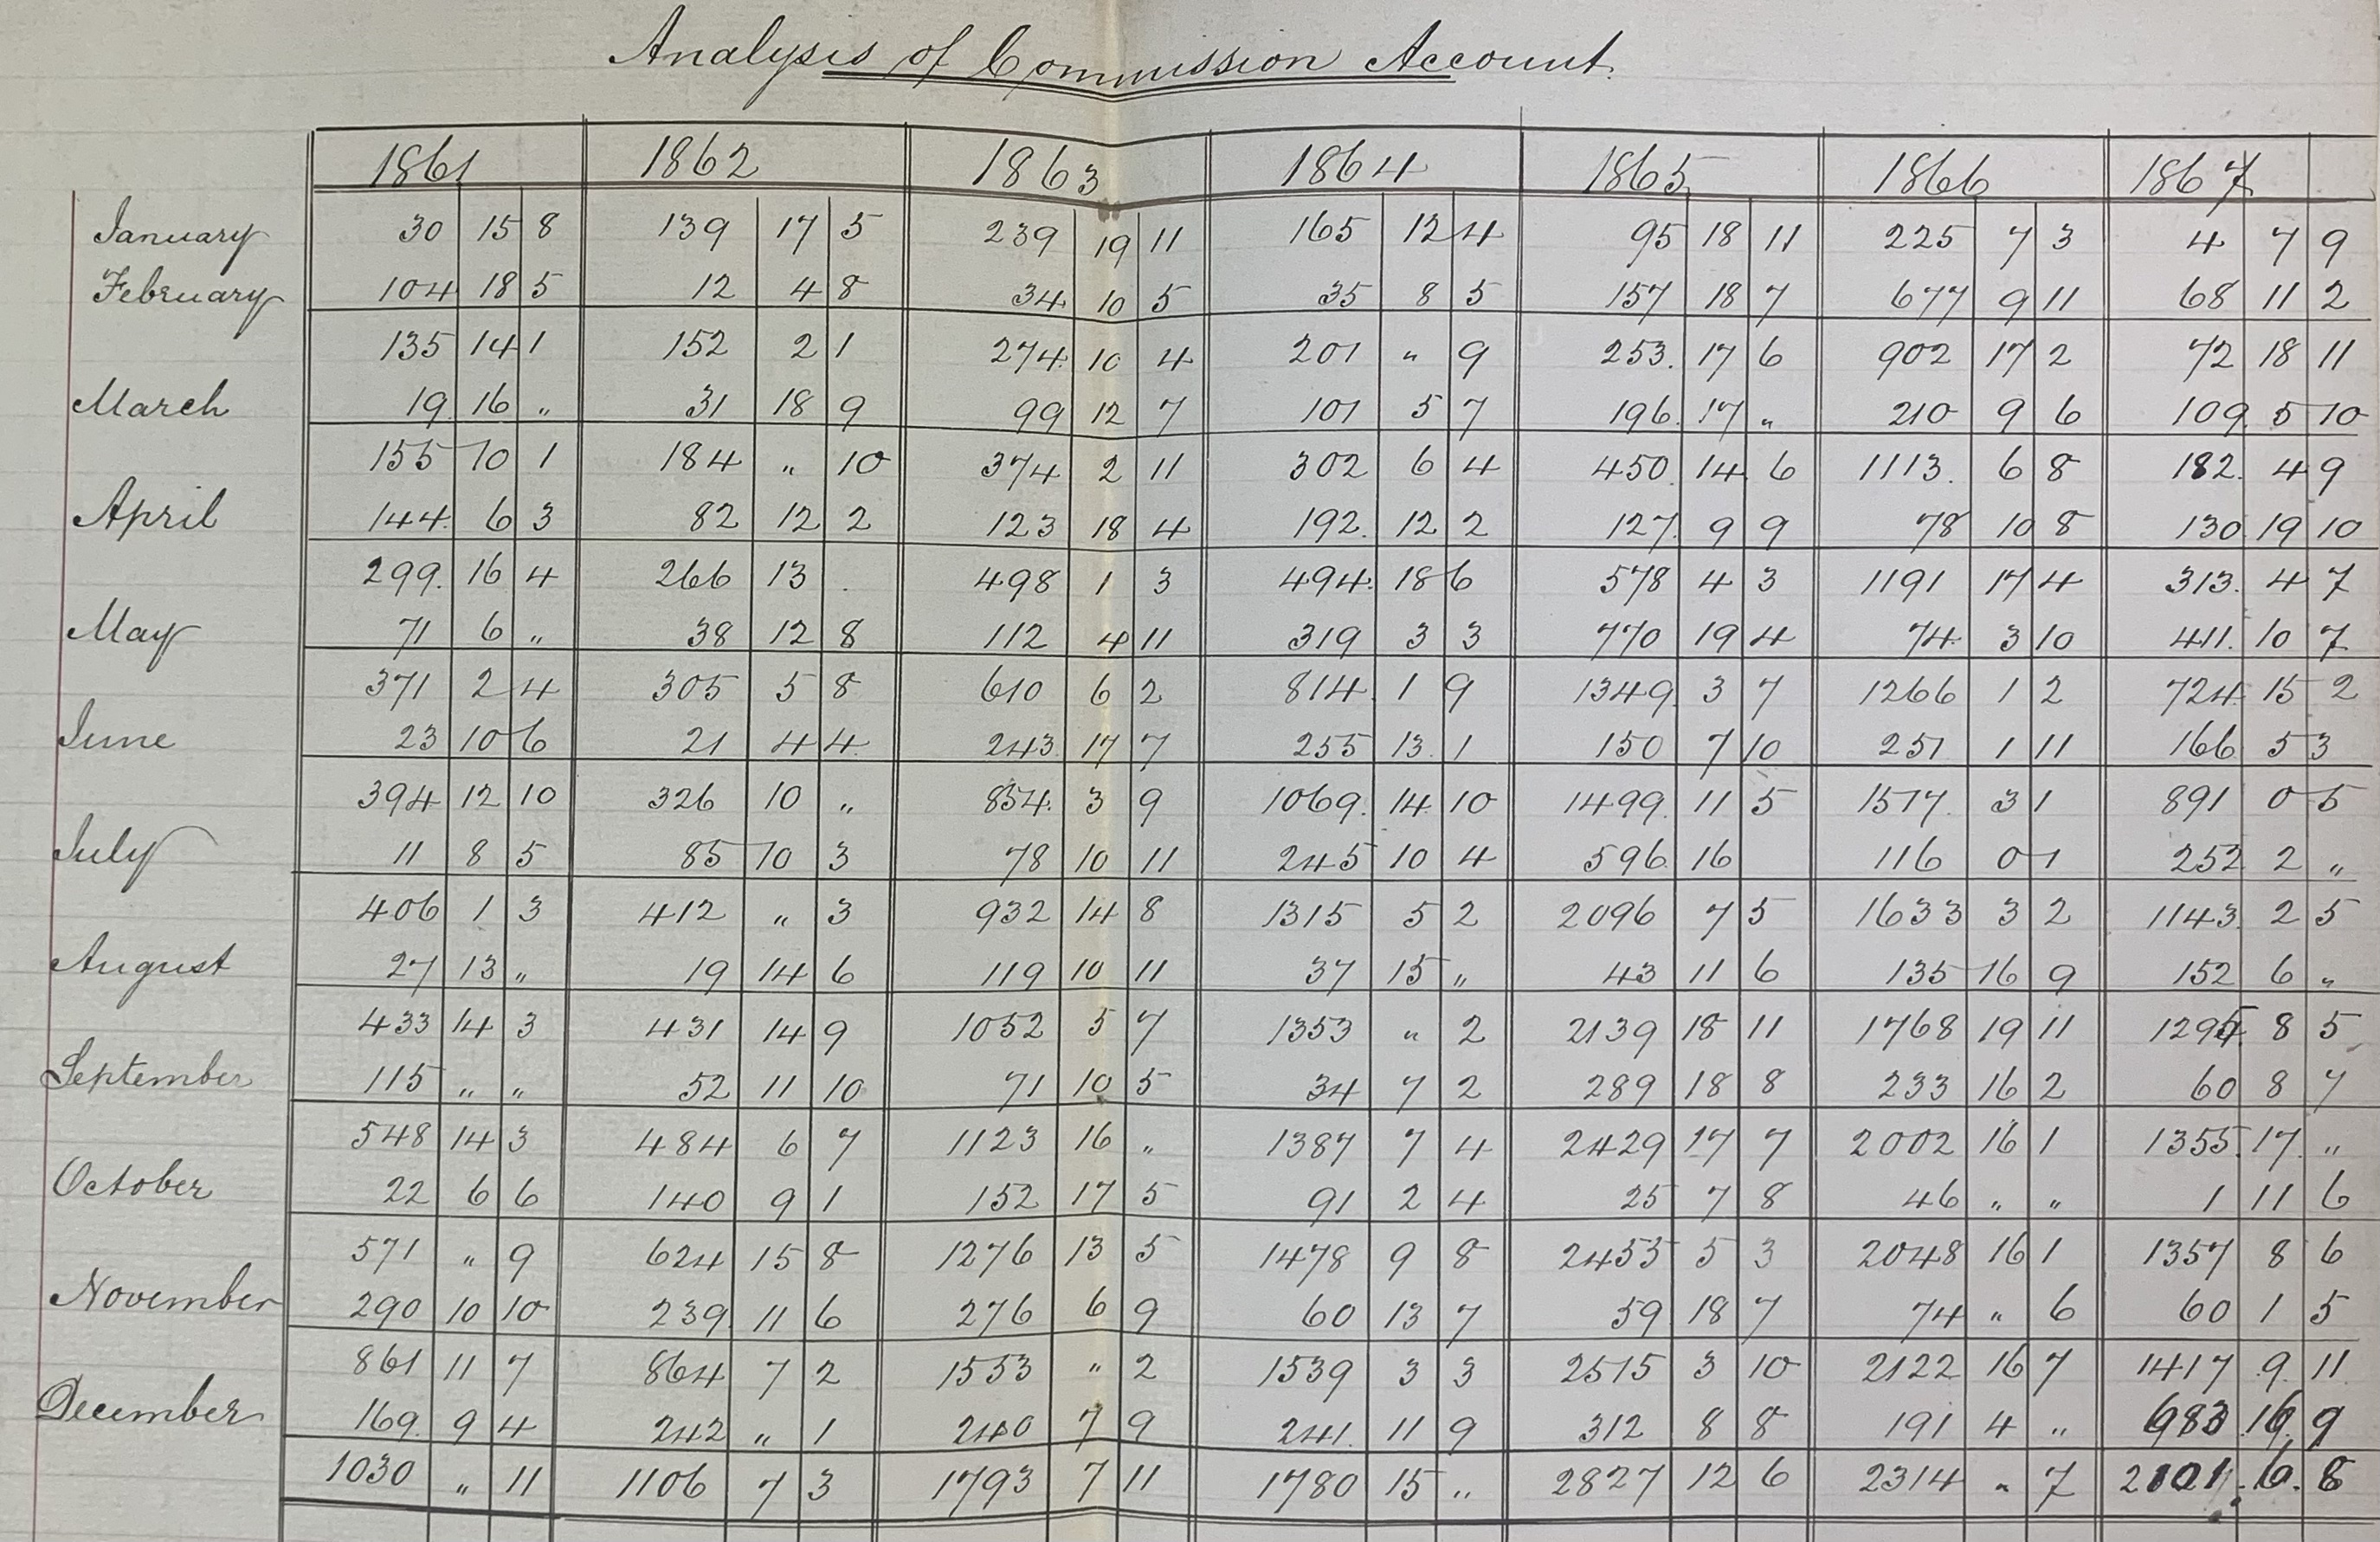 Analysis of Commission Account.
1861 1862 1863 1864 1865 1866 1867
January 30 15 8 139 17 5 239 19 11 165 12 4 95 18 11 225 7 3 4 7 9
February 104 18 5 12 4 8 34 10 5 35 8 5 157 18 7 677 9 11 68 11 2
135 14 1 152 2 1 274 10 4 201 " 9 253. 17 6 902 17 2 72 18 11
March 19 16 " 31 18 9 99 12 7 101 5 7 196. 17 " 210 9 6 109. 5 10
155 10 1 184 " 10 374 2 11 302 6 4 450. 14 6 1113. 6 8 182. 4 9
April 144. 6 3 82 12 2 123 18 4 192. 12 2 127. 9 9 78 10 8 130 19 10
299. 16 4 266 13 . 498 1 3 494. 18 6 578 4 3 1191 17 4 313. 4 7
May 71 6 " 38 12 8 112 4 11 319 3 3 770 19 4 74. 3 10 411. 10 7
371 2 4 305 5 8 610 6 2 814. 1 9 1349. 3 7 1266 1 2 724. 15 2
June 23 10 6 21 4 4 243. 17 7 255 13. 1 150 7 10 251 1 11 166 5 3
394 12 10 326 10 " 854. 3 9 1069. 14 10 1499. 11 5 1517. 3 1 891 0 5
July 11 8 5 85 10 3 78 10 11 245 10 4 596 16 116 0 1 252 2 "
406 1 3 412 " 3 932 14 8 1315 5 2 2096 7 5 1633 3 2 1143. 2 5
August 27 13 " 19 14 6 119 10 11 37 15 " 43 11 6 135 16 9 152 6 "
433 14 3 431 14 9 1052 5 7 1353 " 2 2139 18 11 1768 19 11 1295 8 5
September 115 " " 52 11 10 71 10 5 34 7 2 289 18 8 233 16 2 60 8 7
548 14 3 484 6 7 1123 16 " 1387 7 4 2429 17 7 2002 16 1 1355. 17. "
October 22 6 6 140 9 1 152 17 5 91 2 4 25 7 8 46 " " 1 11 6
571 " 9 624 15 8 1276 13 5 1478 9 8 2455 5 3 2048 16 1 1357 8 6
November 290 10 10 239. 11 6 276 6 9 60 13 7 59 18 7 74 " 6 60 1 5
861 11 7 864 7 2 1553 " 2 1539 3 3 2515 3 10 2122 16 7 1417 9. 11
December 169. 9 4 242 " 1 240 7 9 241. 11 9 312 8 8 191 4 " 683 16. 9
1030 " 11 1106 7 3 1793 7 11 1780 15 " 2827 12 6 2314 " 7 2101. 6. 8